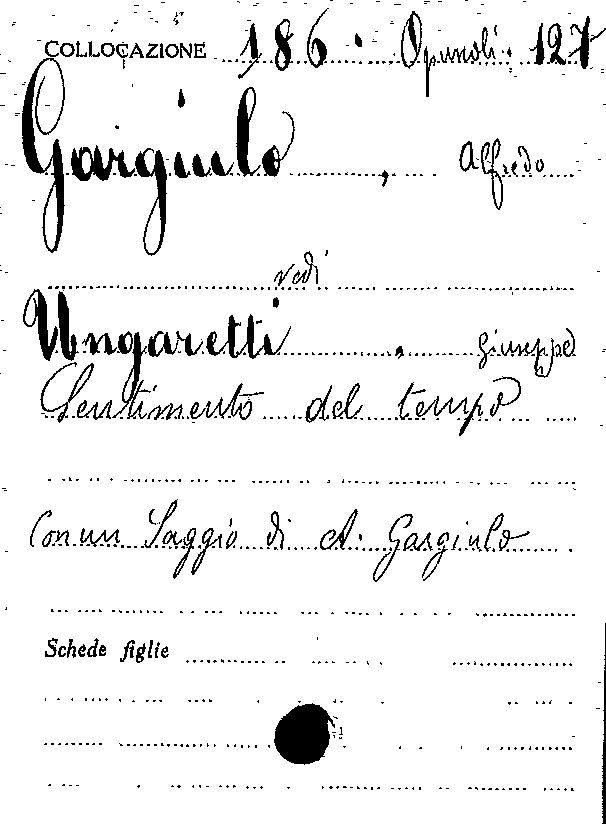 COLLOCAZIONE 186. Opuscoli. 127
Gargiulo, Alfredo
vedi
Ungaretti, Giuseppe
Sentimento del tempo
Con un Saggio di A. Gargiulo
Schede figlie